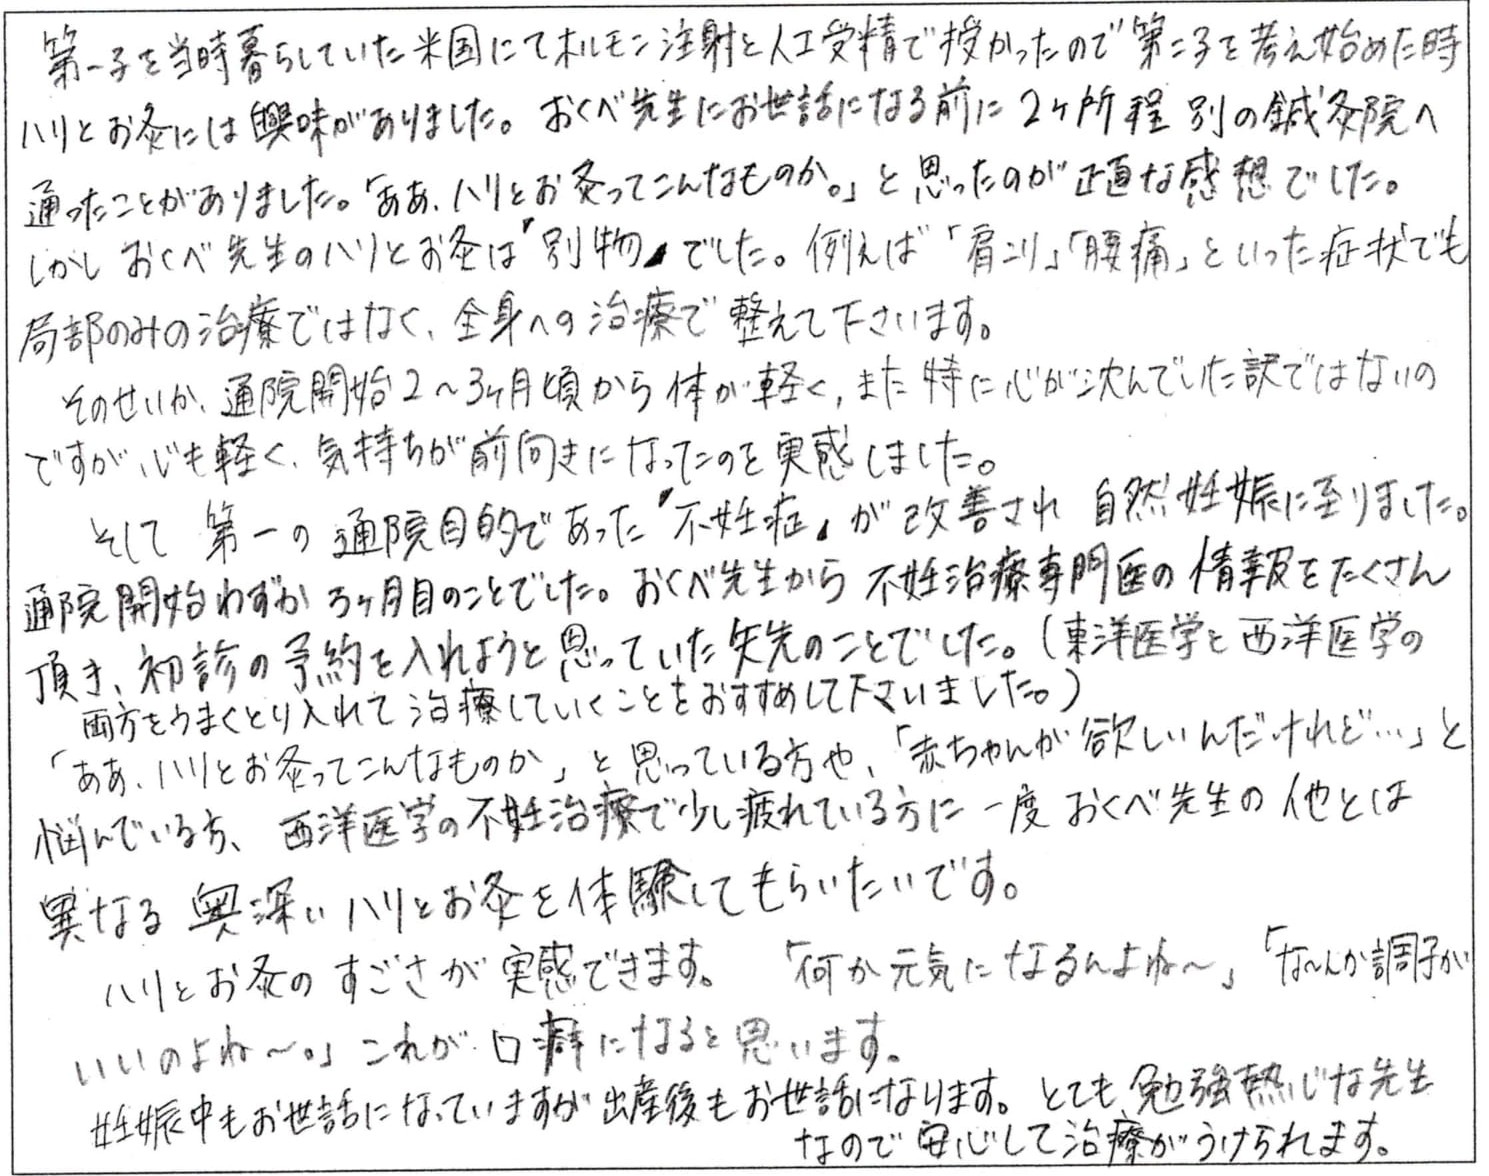 第一子を当時暮らしていた米国にてホルモン注射と人工受精で授かったので第二子を考え始めた時
ハリとお灸には興味がありました。おくべ先生にお世話になる前に2ヶ所程別の鍼灸院へ
通ったことがありました。「ああ、ハリとお灸ってこんなものか。」と思ったのが正直な感想でした。
しかしおくべ先生のハリとお灸は『別物』でした。例えば「肩こり」「腰痛」といった症状でも
局部のみの治療ではなく、全身への治療で整えて下さいます。
そのせいか、通院開始2〜3ヶ月頃から体が軽く、また特に心が沈んでいた訳ではないの
ですが心も軽く、気持ちが前向きになったのを実感しました。
そして第一の通院目的であった『不妊症』が改善され自然妊娠に至りました。
通院開始わずか3ヶ月目のことでした。おくべ先生から不妊治療専門医の情報をたくさん
頂き、初診の予約を入れようと思っていた矢先のことでした。(東洋医学と西洋医学の
両方をうまくとり入れて治療していくことをおすすめして下さいました。)
「ああ、ハリとお灸ってこんなものか」と思っている方や、「赤ちゃんが欲しいんだけれど…」と
悩んでいる方、西洋医学の不妊治療で少し疲れている方に一度おくべ先生の他とは
異なる奥深いハリとお灸を体験してもらいたいです。
ハリとお灸のすごさが実感できます。「何か元気になるんよね〜」「な〜んか調子が
いいのよね〜。」これが口癖になると思います。
妊娠中もお世話になっていますが出産後もお世話になります。とても勉強熱心な先生
なので安心して治療がうけられます。